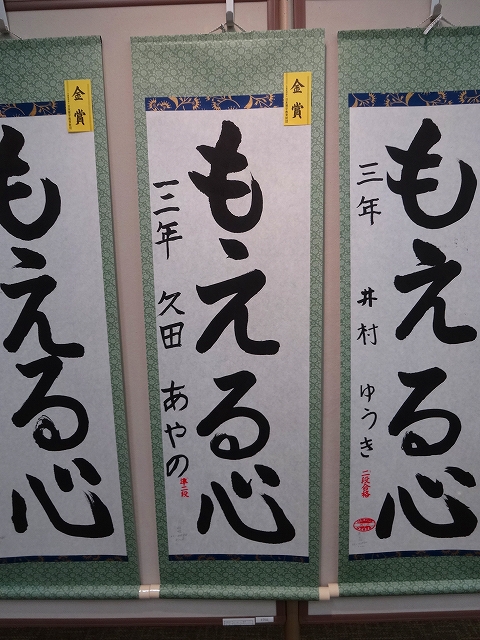 金賞
もえる心
三年 井村 ゆうき
二段合格
金賞
もえる心
三年 久田 あやの
準二段
もえる心